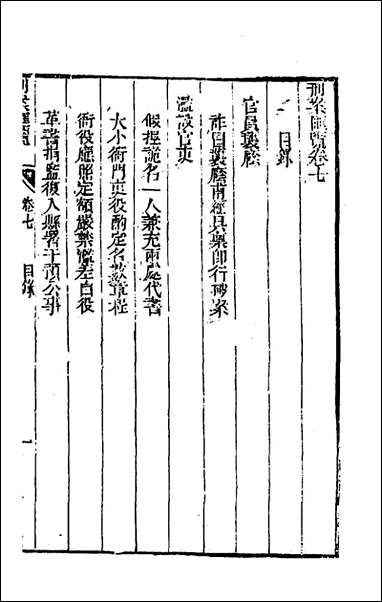 刑案匯覽卷七
目錄
官員襲廕
詐冒襲廕甫經具稟即行破案
濫設官吏
假捏詭名一人兼充兩處代書
大小衙門吏役酌定名數章程
衙役應照定額嚴禁濫差白役
革書捐監復入縣署干預公事
刑案匯覽
卷七 目錄
一